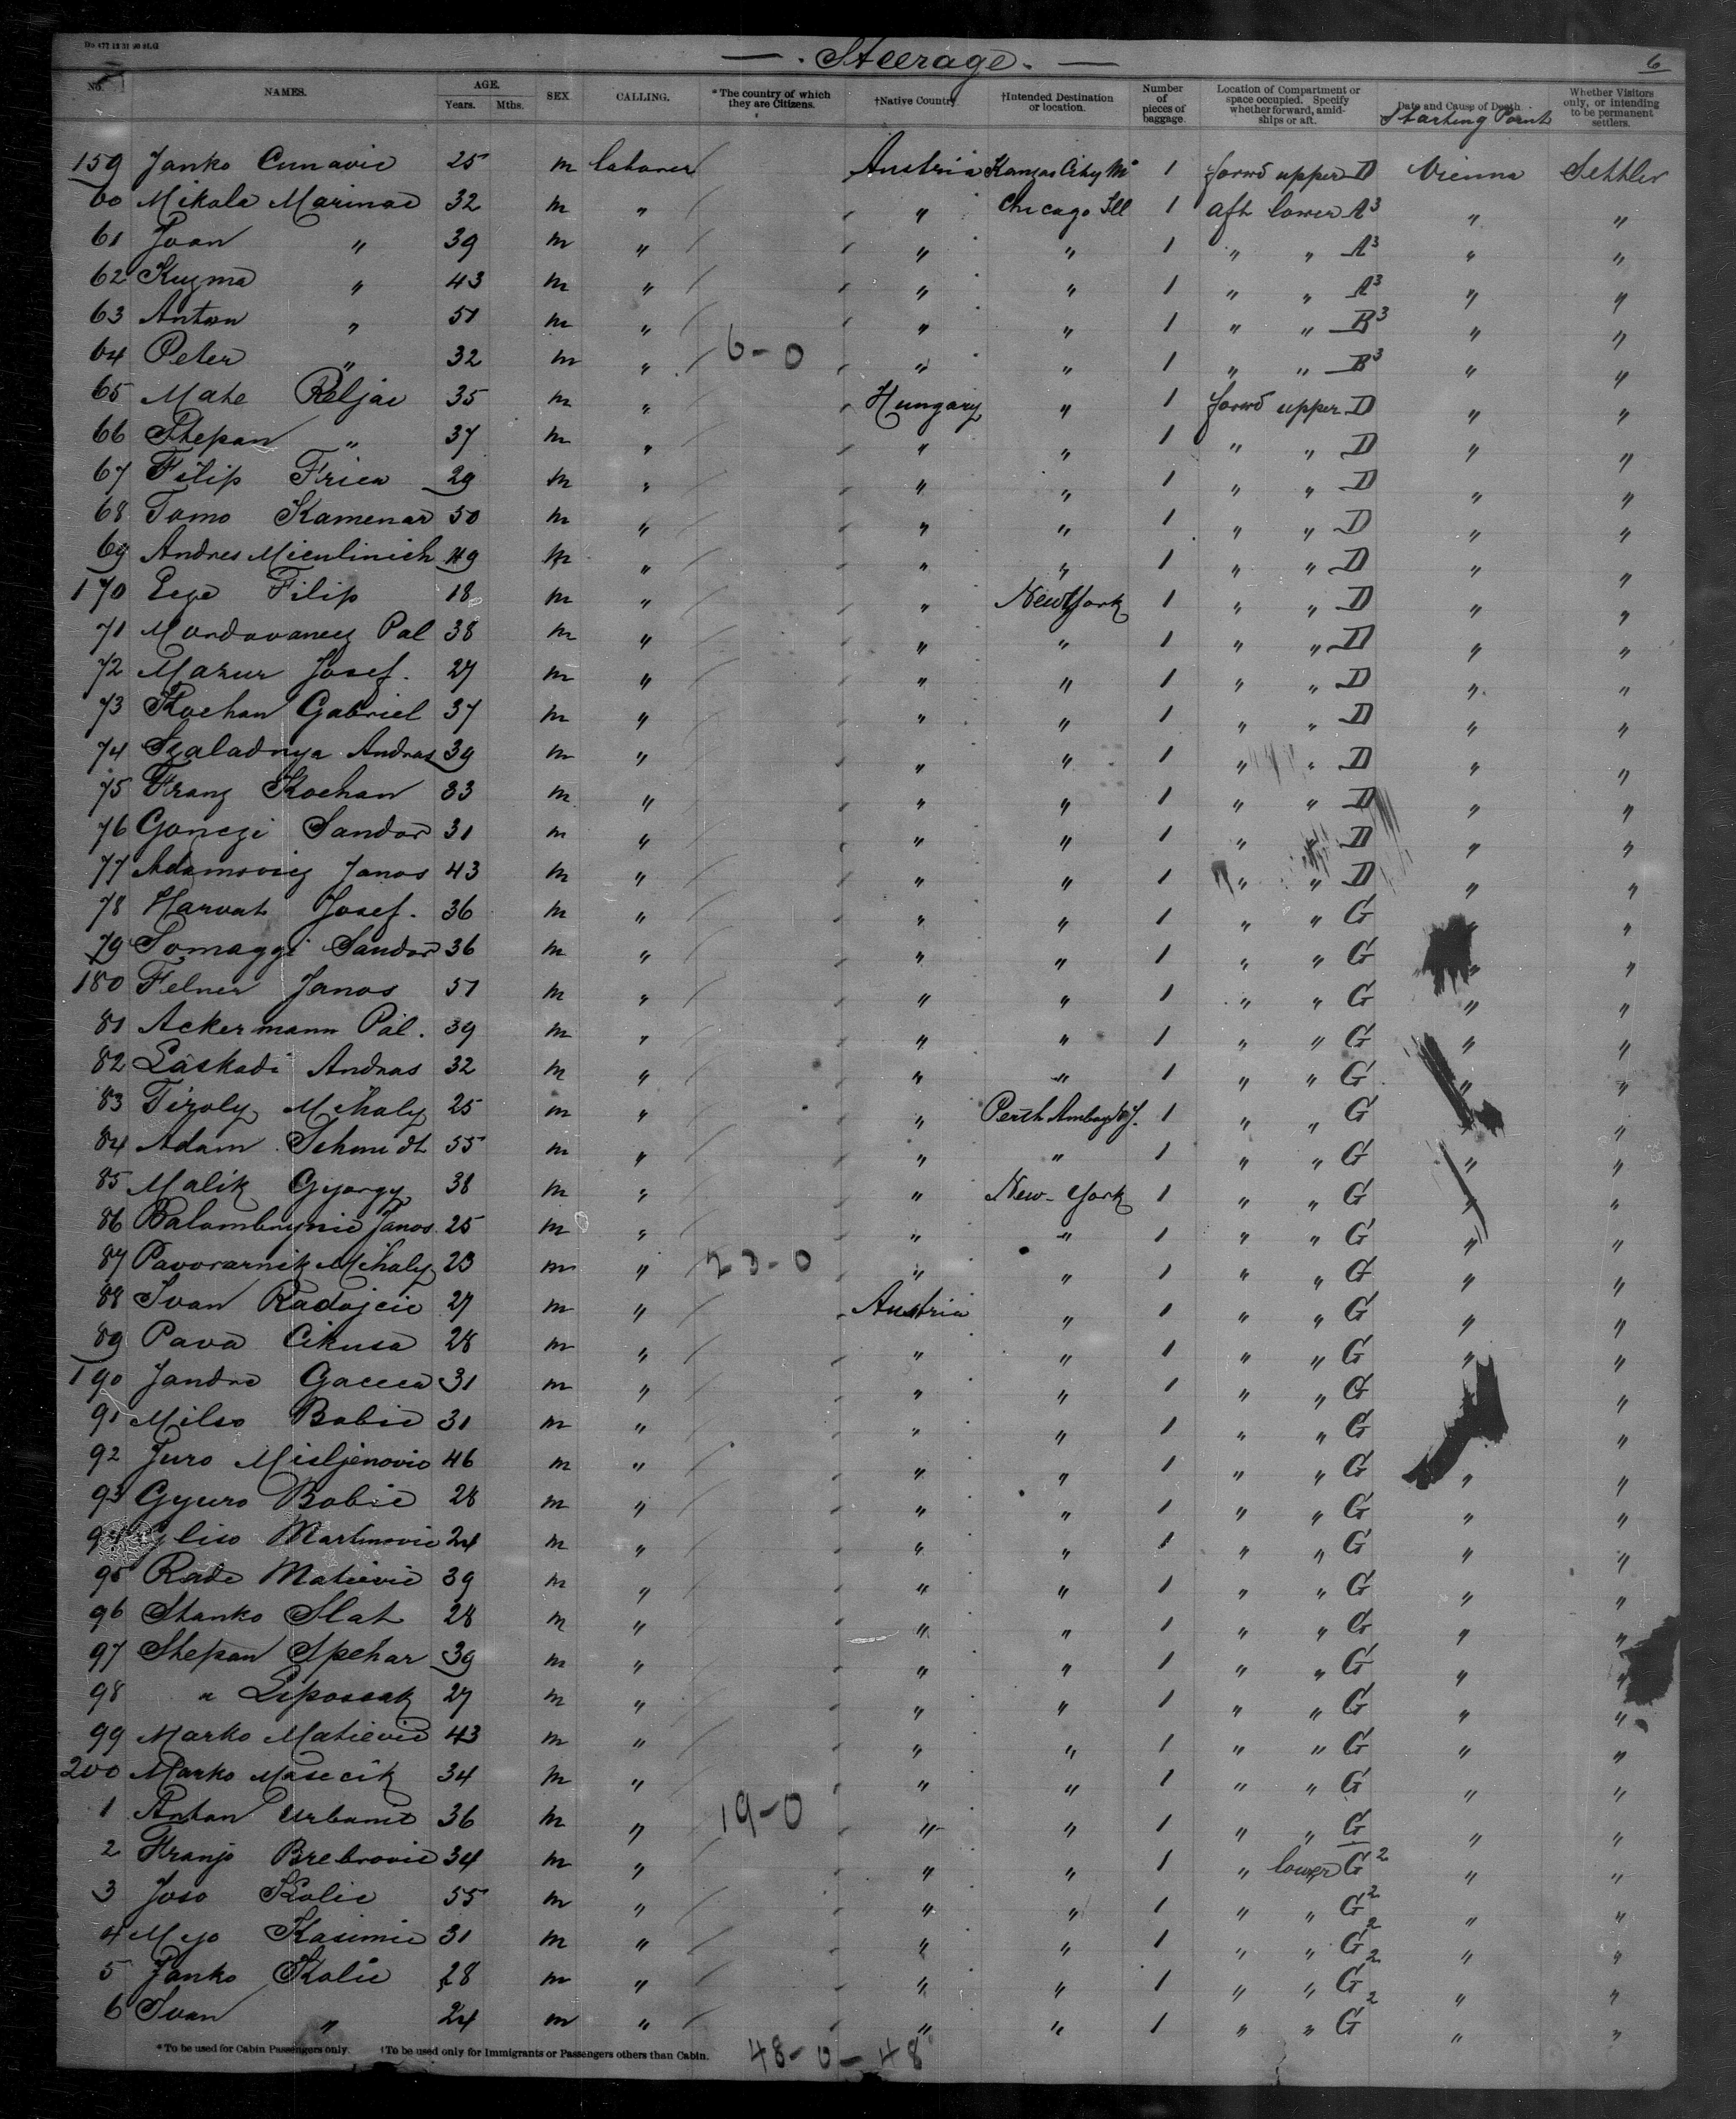 No 477 12 31 90 St.G
— . Steerage . —
6
No.
NAMES.
AGE.
Years. Mths.
SEX
CALLING.
*The country of which they are Citizens.
†Native Country
†Intended Destination or location.
Number of pieces of baggage.
Location of Compartment or space occupied. Specify whether forward, amidships or aft.
Date and Cause of Death
Starting Point
Whether Visitors only, or intending to be permanent settlers.
159 Janko Cunavic 25 m laborer Austria Kansas City Mo 1 forwd upper D Vienna Settler
60 Mikola Marinac 32 m " " Chicago Ill 1 aft lower A3 " "
61 Joan " 39 m " " " 1 " " A3 " "
62 Kuzma " 43 m " " " 1 " " A3 " "
63 Anton " 51 m " " " 1 " " B3 " "
64 Peter " 32 m " 6-0 " " 1 " " B3 " "
65 Mate Reljac 35 m " Hungary " 1 forwd upper D " "
66 Stepan " 37 m " " " 1 " " D " "
67 Filip Frica 29 m " " " 1 " " D " "
68 Tomo Kamenar 50 m " " " 1 " " D " "
69 Andres Miculinich 49 m " " " 1 " " D " "
170 Ecge Filip 18 m " " New York 1 " " D " "
71 Mordovanecz Pal 38 m " " " 1 " " D " "
72 Mazur Josef. 27 m " " " 1 " " D " "
73 Kochan Gabriel 37 m " " " 1 " " D " "
74 Szaladnya Andras 39 m " " " 1 " " D " "
75 Franz Kochan 33 m " " " 1 " " D " "
76 Gonczi Sandor 31 m " " " 1 " " D " "
77 Adamovicz Janos 43 m " " " 1 " " D " "
78 Harvat Josef. 36 m " " " 1 " " G " "
79 Somaggi Sandor 36 m " " " 1 " " G " "
180 Felner Janos 51 m " " " 1 " " G " "
81 Ackermann Pál. 39 m " " " 1 " " G " "
82 Láskadi Andras 32 m " " " 1 " " G " "
83 Tiroly Mihaly 25 m " " Perth Amboy N.J. 1 " " G " "
84 Adam Schmidt 55 m " " " 1 " " G " "
85 Malik Gyorgy 38 m " " New-York 1 " " G " "
86 Janos 25 m " " " 1 " " G " "
87 Pavorarnik Mihaly 23 m " 23-0 " " 1 " " G " "
88 Ivan Radojcic 27 m " Austria " 1 " " G " "
89 Pava Cikusa 28 m " " " 1 " " G " "
190 Jandro Gacesa 31 m " " " 1 " " G " "
91 Milso Babic 31 m " " " 1 " " G " "
92 Juro Misljenovic 46 m " " " 1 " " G " "
93 Gyuro Babic 28 m " " " 1 " " G " "
94 Gliso Martinovic 24 m " " " 1 " " G " "
95 Rade Matievic 39 m " " " 1 " " G " "
96 Stanko Slat 28 m " " " 1 " " G " "
97 Stepan Spehar 39 m " " " 1 " " G " "
98 " Liposcak 27 m " " " 1 " " G " "
99 Marko Matievic 43 m " " " 1 " " G " "
200 Marko Masecik 34 m " " " 1 " " G " "
1 Anton Urbanit 36 m " 19-0 " " 1 " " G " "
2 Franjo Brebrovic 34 m " " " 1 " lower G2 " "
3 Joso Kolic 55 m " " " 1 " " G2 " "
4 Mijo Kasimic 31 m " " " 1 " " G2 " "
5 Janko Kolic 28 m " " " 1 " " G2 " "
6 Ivan " 24 m " " " 1 " " G2 " "
*To be used for Cabin Passengers only. †To be used only for Immigrants or Passengers others than Cabin.
48-0-48